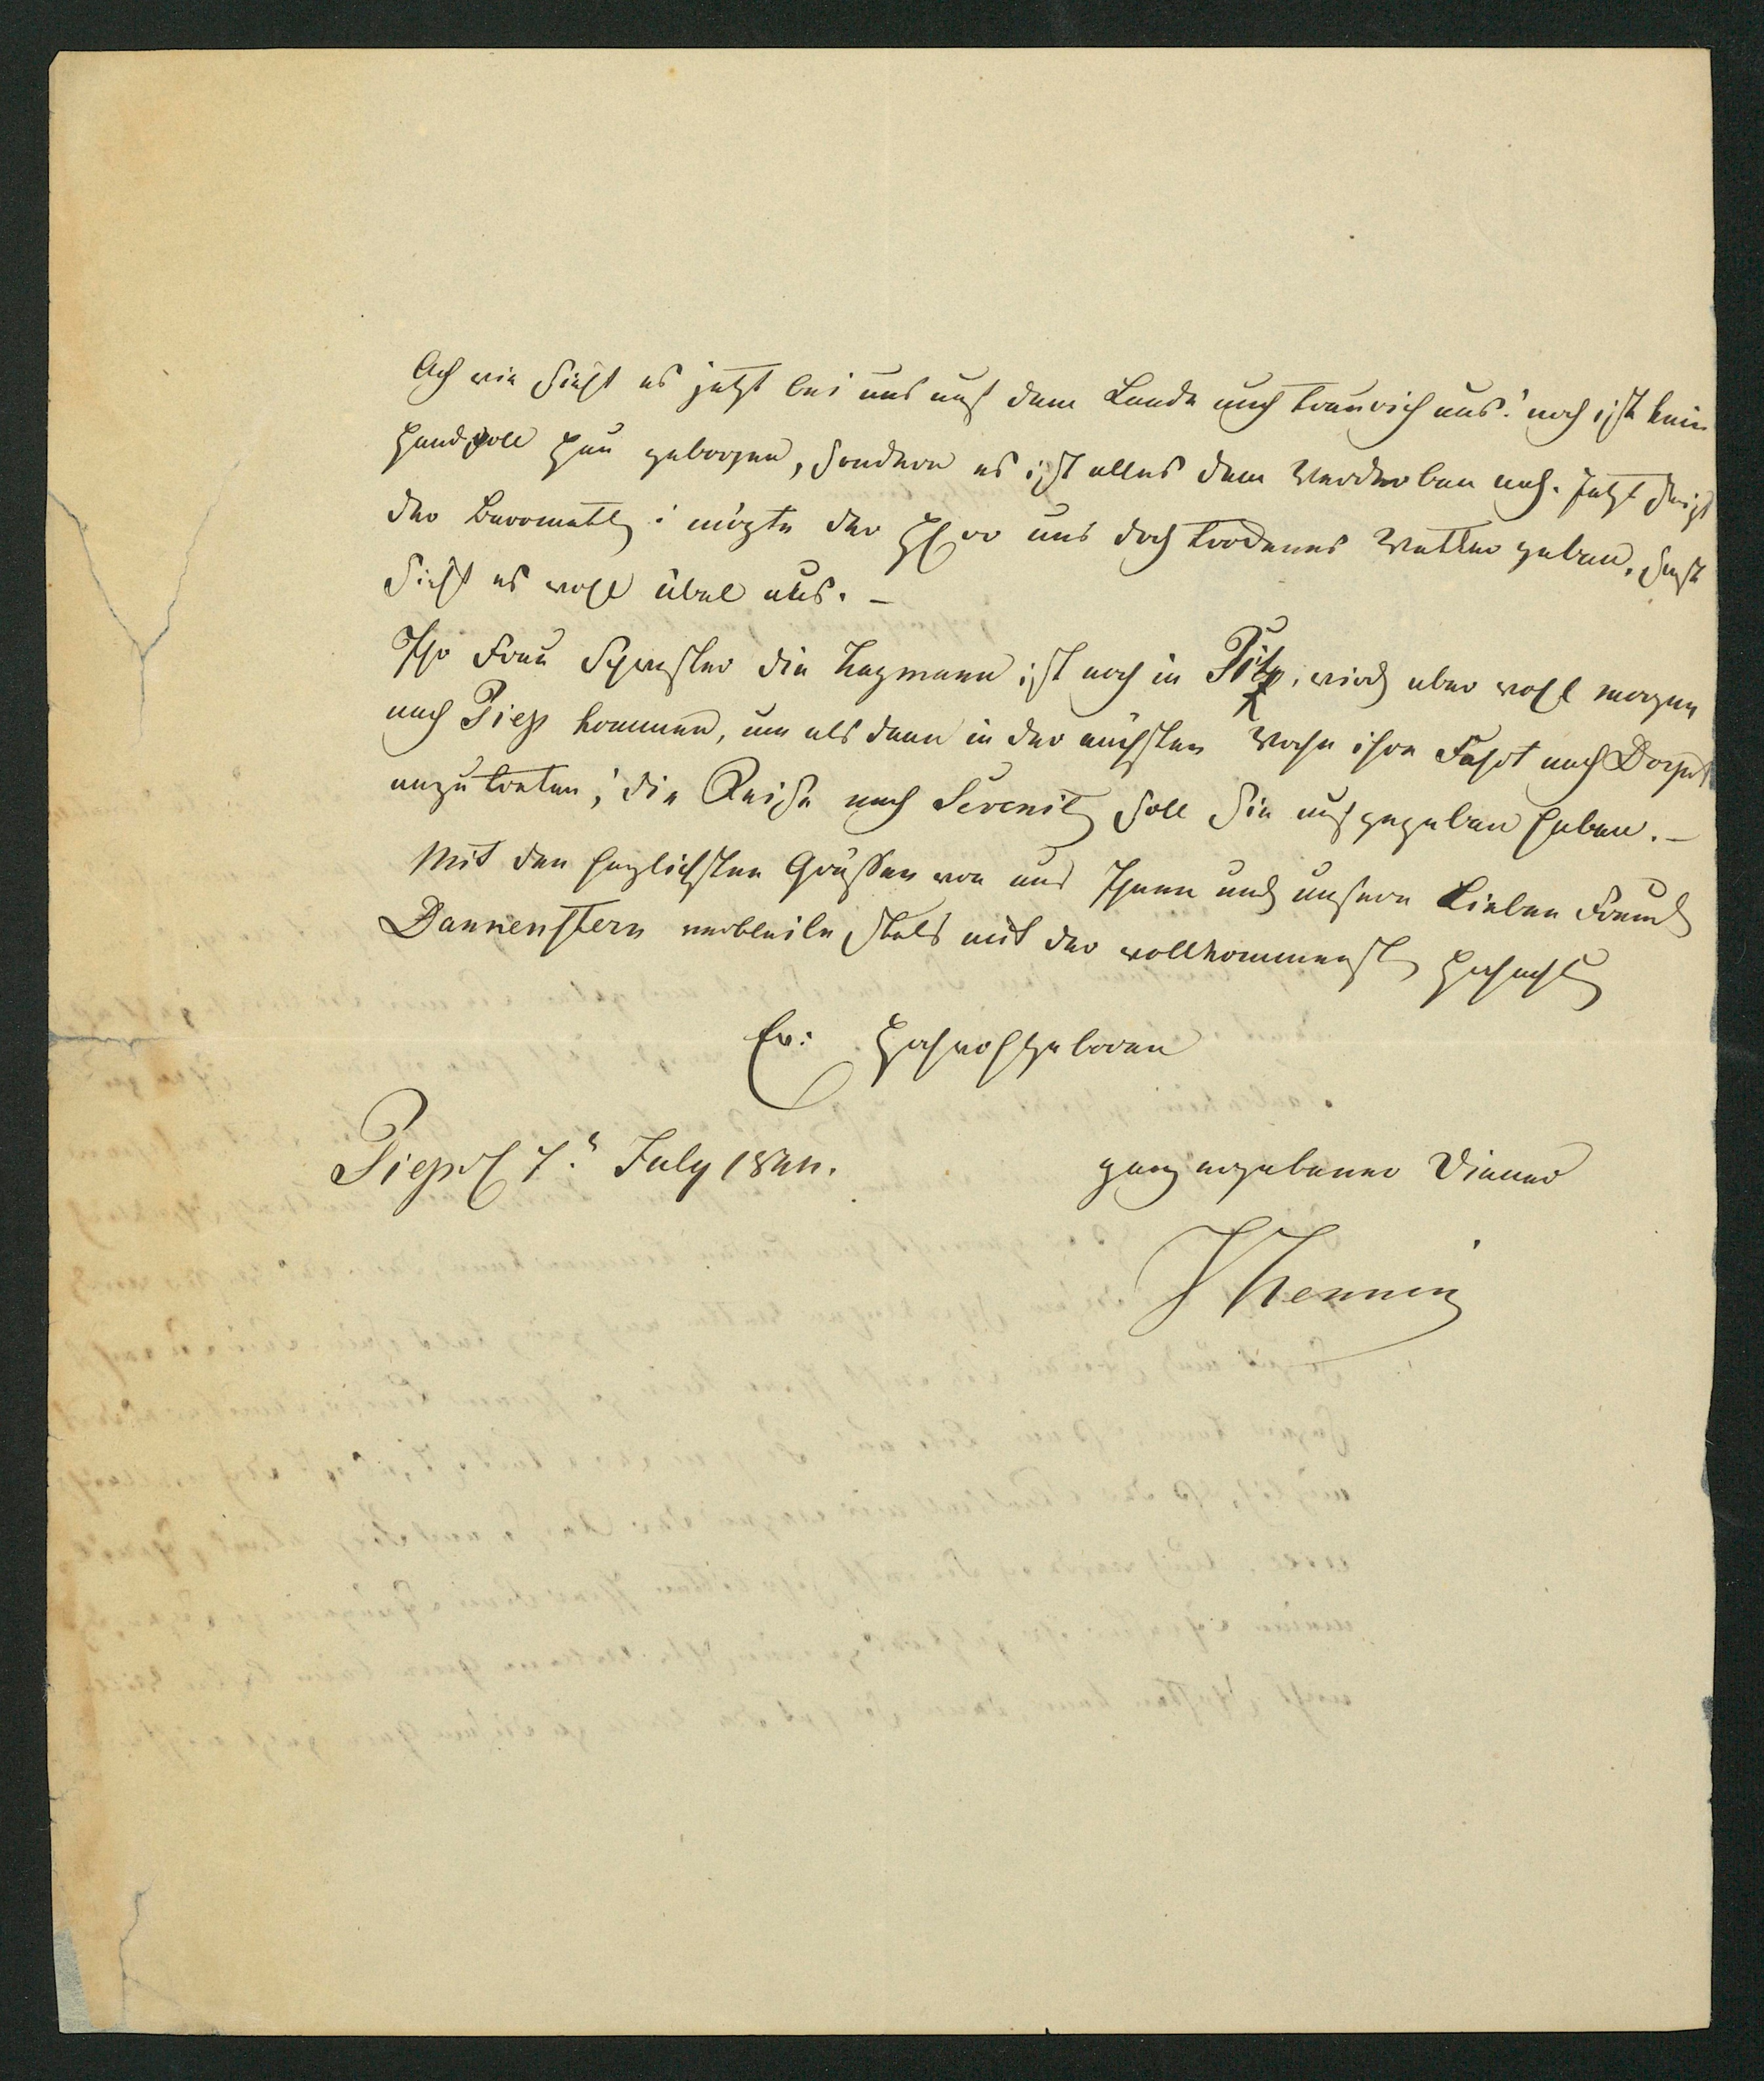 Ach wie sieht es jetzt bei uns auf dem Lande auch traurich aus! noch ist kein
Handvoll Heu geborgen, sondern es ist alles dem Verderben nah. Jetzt steigt
der Barometer; mögte der Herr uns doch trockenes Wetter geben, sonst
sieht es wohl übel aus. –
Ihr Frau Schwester die Hagmann ist noch in wird aber wohl morgen
nach Piep kommen, um als dann in der nächsten Woche ihre Fahrt nach Dorpat
anzutreten; die Reise nach Serenitz soll Sie aufgegeben haben. –
Mit den herzlichsten Grüßen von uns Ihnen und unsern Lieben Freund
Dannenstern verbleibe stets mit der vollkommensten Hochachtung
Ew: Hochwohlgeboren
Piep d 7.t July 1844. ganz ergebener Diener